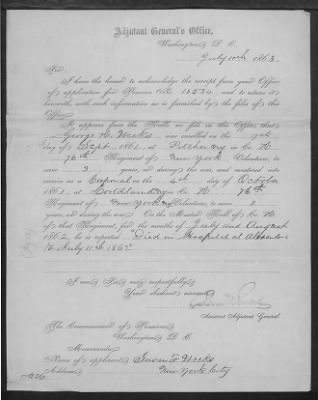 Adjutant General's Office,
Washington, D. C.
July 10th, 1863.
Sir:
I have the honor to acknowledge the receipt from your Office
of application for Pension No. and to return it
herewith, with such information as is furnished by the files of this
Office.
It appears from the Rolls on file in this Office, that
George H. Weeks was enrolled on the 7th
day of Sept., 1861, at Pitcher, in Co. H,
76th Regiment of New York Volunteers, to
serve 3 years, or during the war, and mustered into
service as a Corporal on the 4th day of October
1861, at Cortland, in Co. H, 76th
Regiment of New York Volunteers, to serve 3
years, or during the war. On the Muster Roll of Co. H
of that Regiment, for the months of July and August
1862, he is reported Died in Hospital at
July 11th 1862
I am, Sir, very respectfully,
Your obedient servant,
Assistant Adjutant General.
The Commissioner of Pensions,
Washington, D. C.
Memoranda.
Name of applicant, Susan F. Weeks
Address, New York City